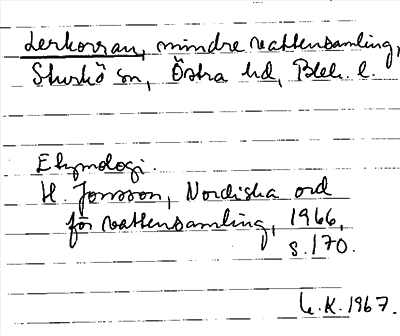 Lerkorran, mindre vattensamling,
Sturkö sn, Östra hd, Blek. l.
Etymologi.
H. Jonsson, Nordiska ord
för vattensamling, 1966,
s. 170.
G.K. 1967.